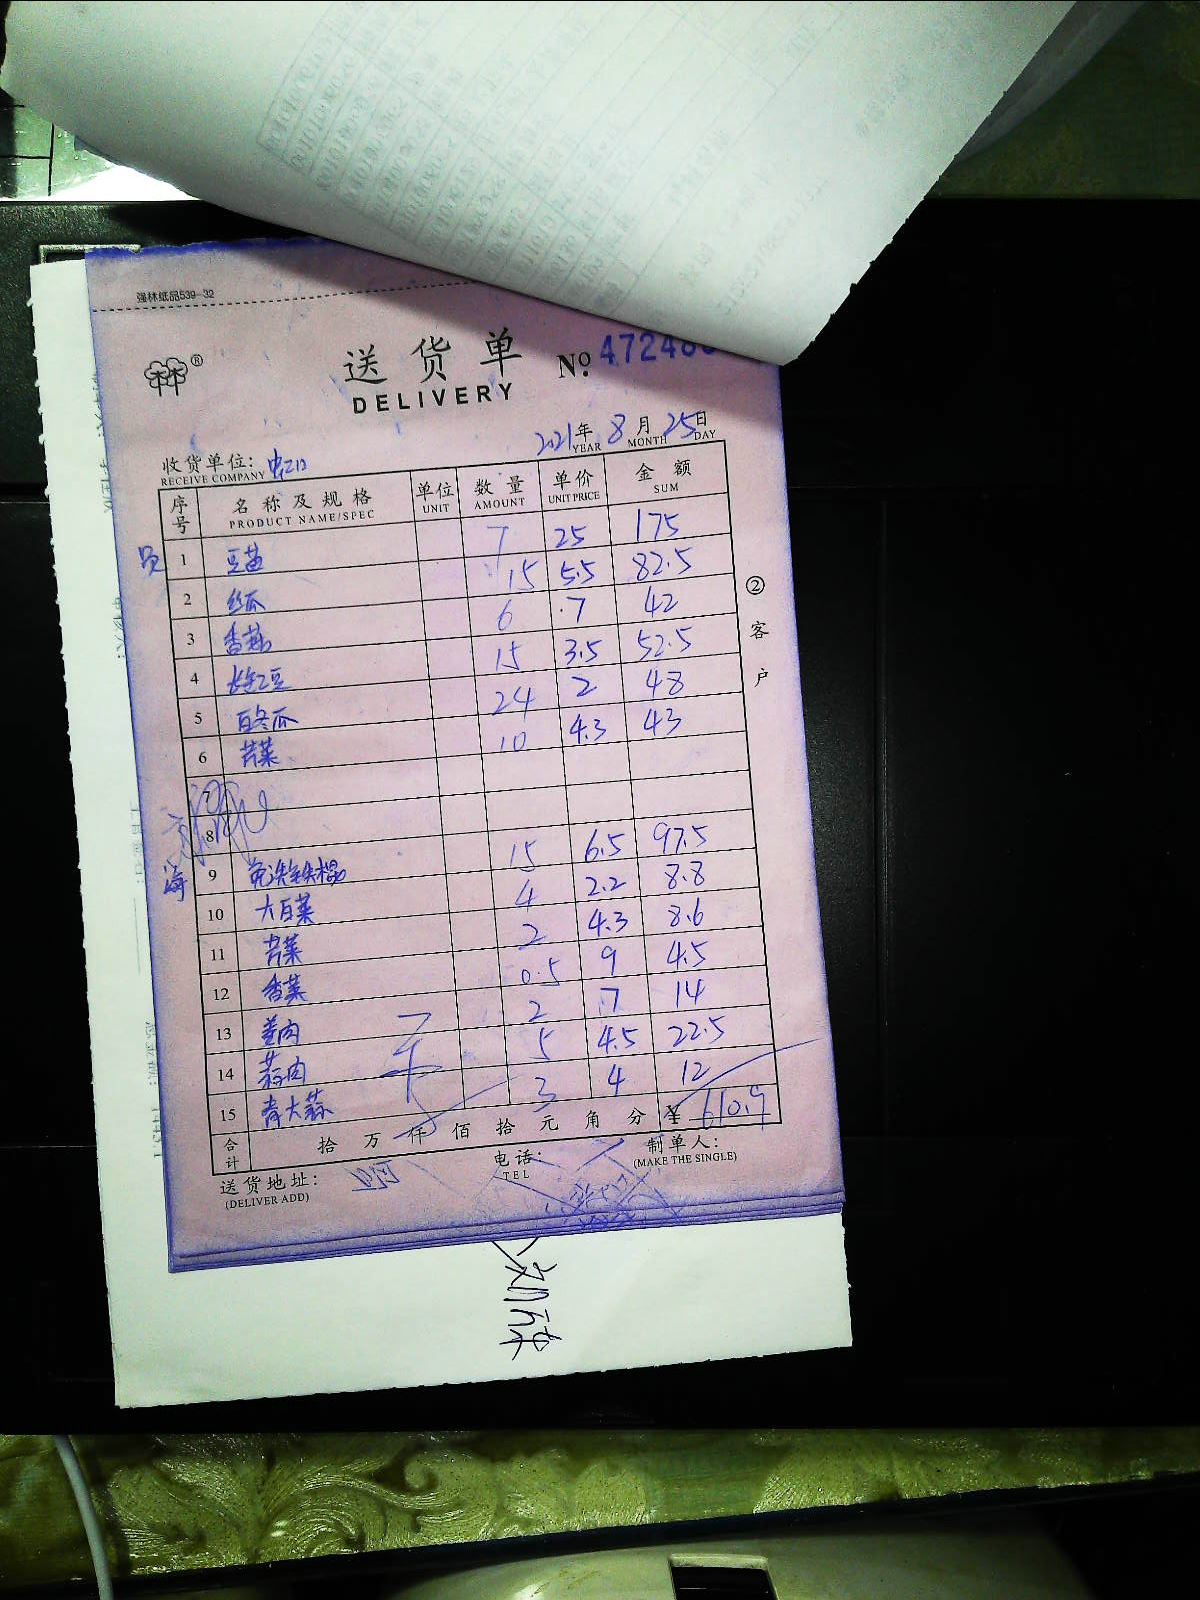 强林纸品539-32
送货单 No. 47248
DELIVERY
2021年 8月 25日
YEAR MONTH DAY
收货单位: 虹口
RECEIVE COMPANY
序号 名称及规格 单位 数量 单价 金额
PRODUCT NAME/SPEC UNIT AMOUNT UNIT PRICE SUM
员 1 豆苗 7 25 175
2 丝瓜 15 5.5 82.5
3 香菇 6 7 42
4 长红豆 15 3.5 52.5
5 白冬瓜 24 2 48
6 芹菜 10 4.3 43
7
8
海 9 15 6.5 97.5
10 大白菜 4 2.2 8.8
11 芹菜 2 4.3 8.6
12 香菜 0.5 9 4.5
13 姜肉 2 7 14
14 蒜肉 5 4.5 22.5
15 青大蒜 3 4 12
合计 拾 万 仟 佰 拾 元 角 分 ¥ 610.9
送货地址: 电话: 制单人:
(DELIVER ADD) TEL (MAKE THE SINGLE)
②客户